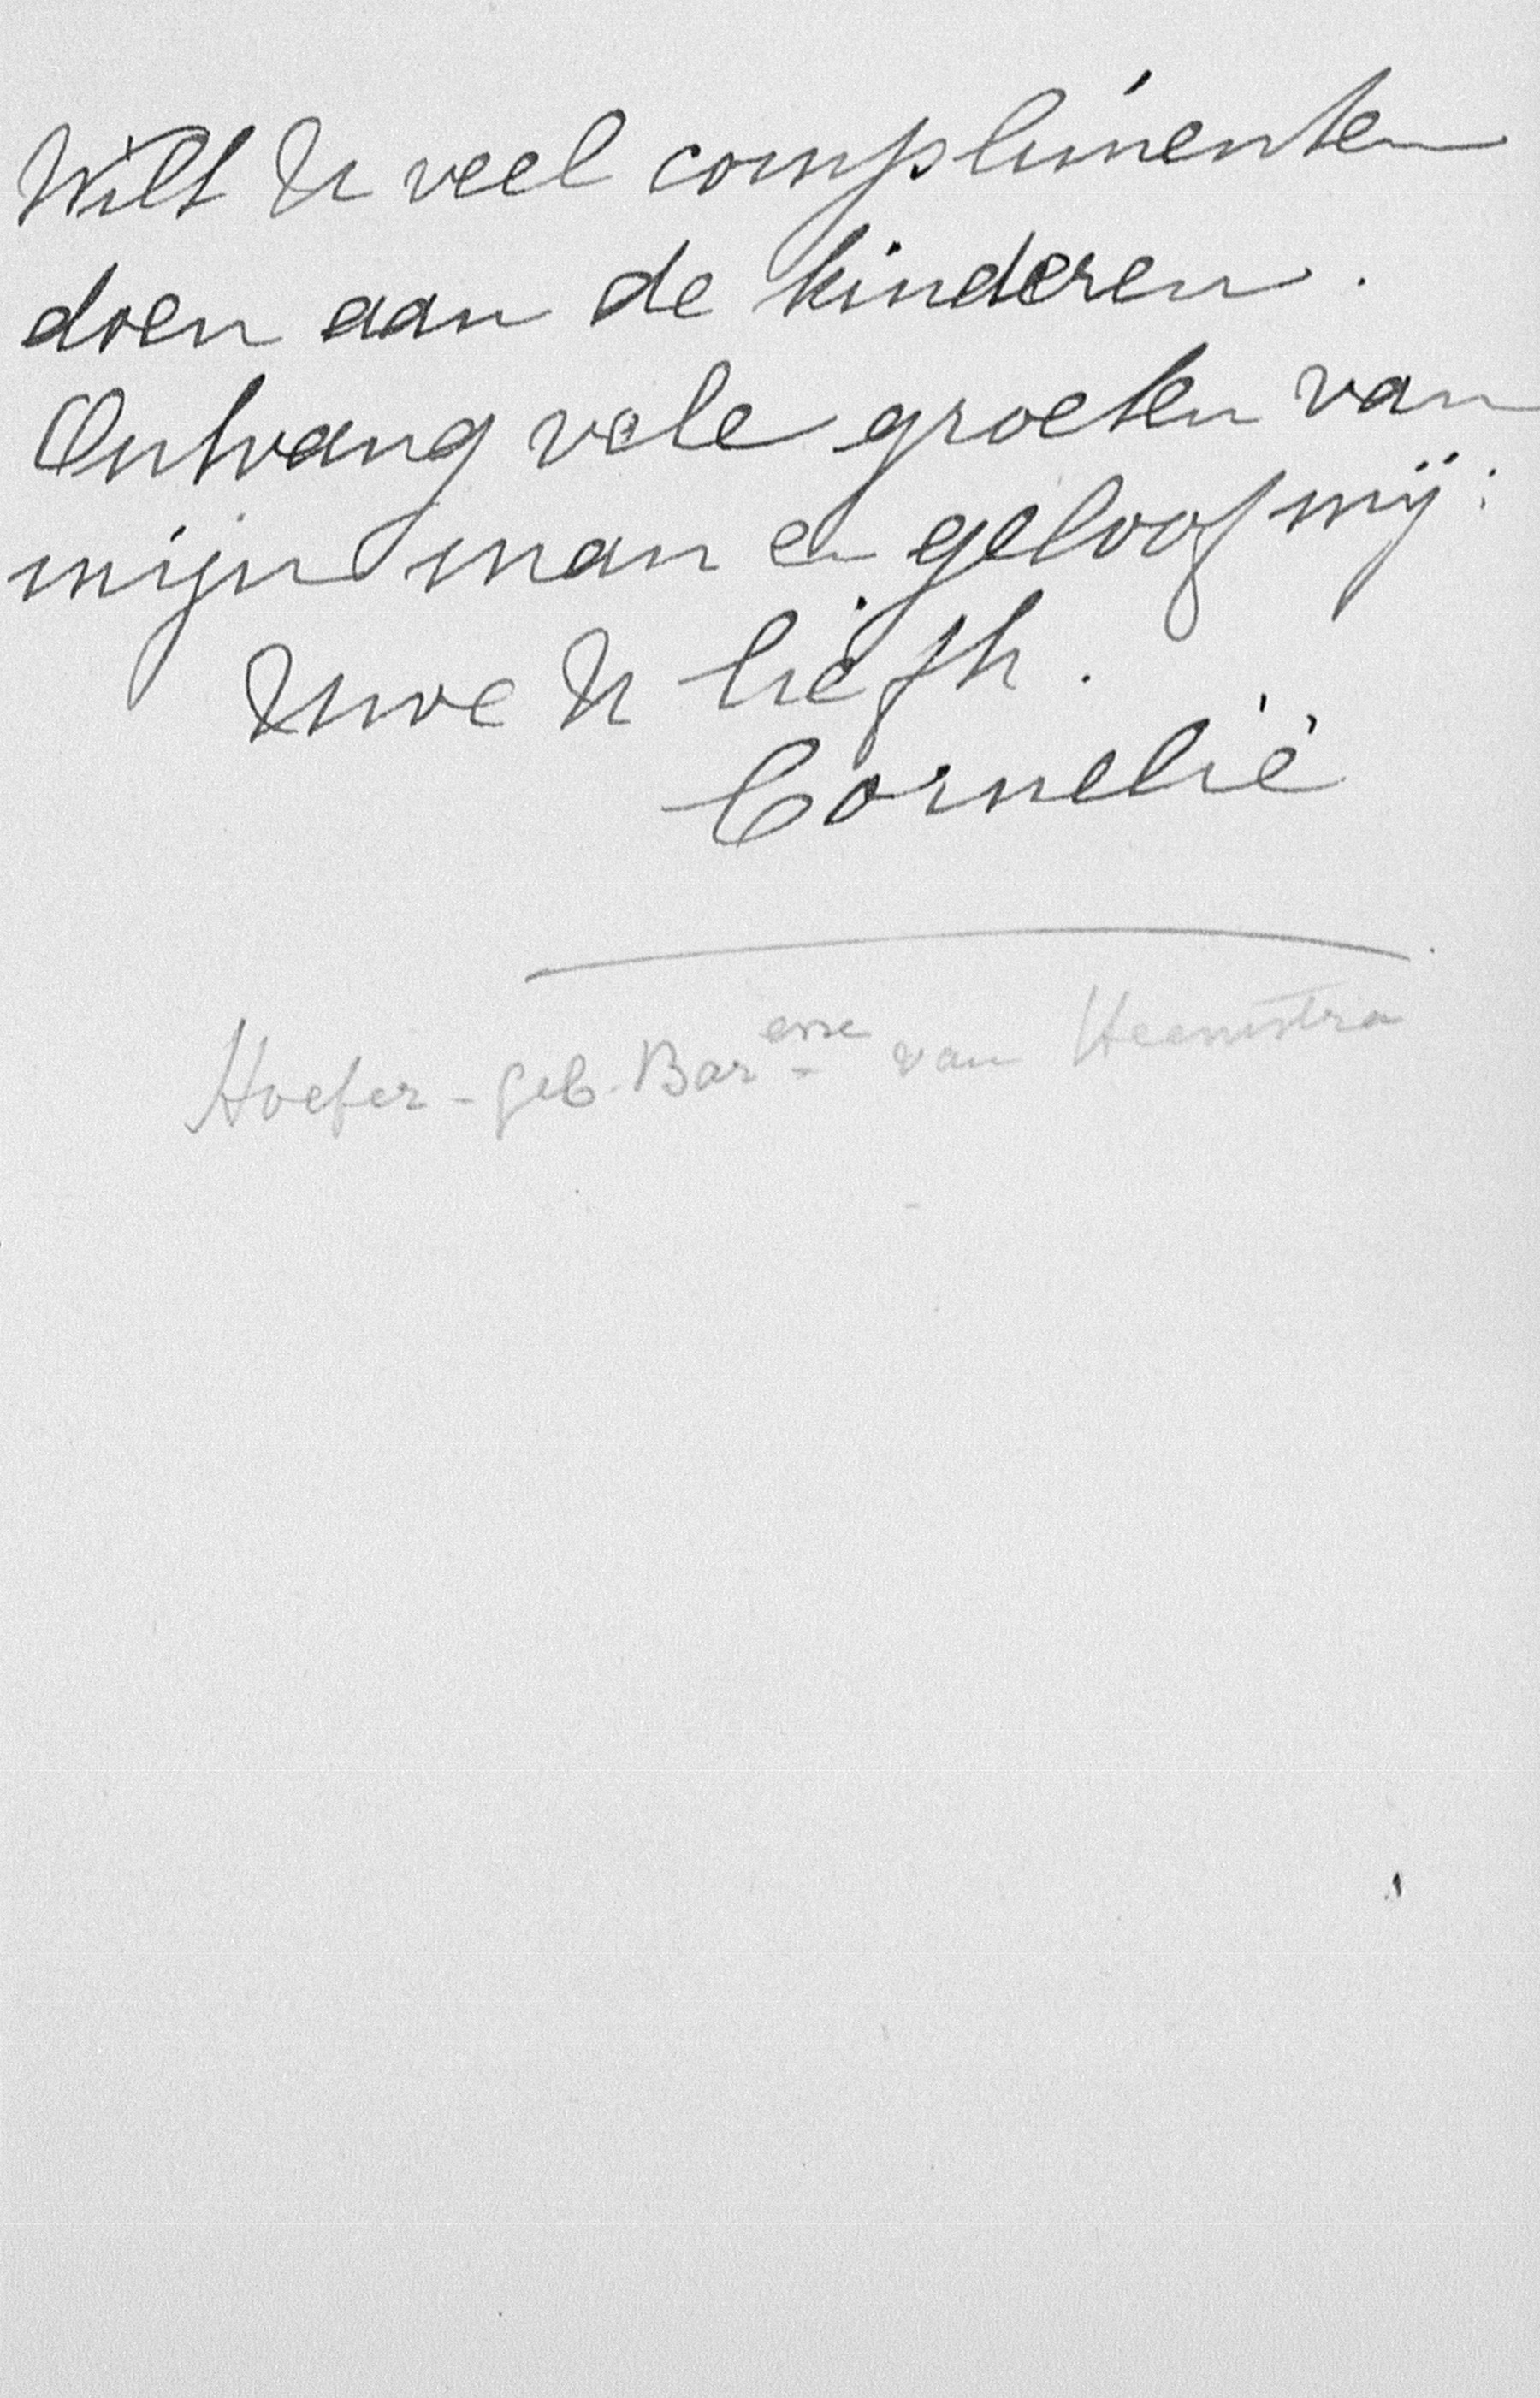 Wilt U veel complimenten
doen aan de kinderen.
Ontvang vele groeten van
mijn man en geloof mij:
Uwe U liefh.
Cornelie
Hoefer - geb. Bar^esse van Heemstra